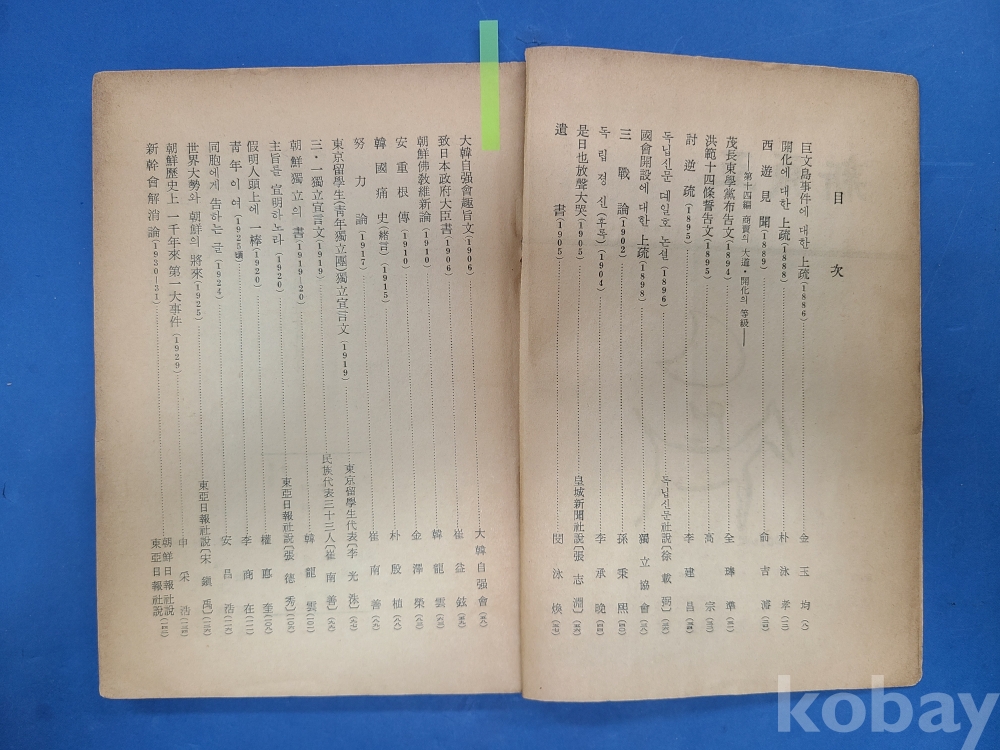 目次
巨文島事件에 대한 上疏(1886) 金玉均
開化에 대한 上疏(1888) 朴泳孝
西遊見聞(1889) 兪吉濬
——第十四編 商賈의 大道・開化의 等級——
茂長東學黨布告文(1894) 全琫準
洪範十四條誓告文(1895) 高宗
討逆疏(1895) 李建昌
독닙신문 데일호 논셜(1896) 독닙신문社說〔徐載弼〕
國會開設에 대한 上疏(1898) 獨立協會
三戰論(1902) 孫秉熙
독립정신(후록)(1904) 李承晩
是日也放聲大哭(1905) 皇城新聞社說〔張志淵〕
遺書(1905) 閔泳煥
大韓自强會趣旨文(1906) 大韓自强會
致日本政府大臣書(1906) 崔益鉉
朝鮮佛敎維新論(1910) 韓龍雲
安重根傳(1910) 金澤榮
韓國痛史(緖言)(1915) 朴殷植
努力論(1917) 崔南善
東京留學生(靑年獨立團)獨立宣言文(1919) 東京留學生代表〔李光洙〕
三・一獨立宣言文(1919) 民族代表三十三人〔崔南善〕
朝鮮獨立의 書(1919-20) 韓龍雲
主旨를 宣明하노라(1920) 東亞日報社說〔張德秀〕
假明人頭上에 一棒(1920) 權悳奎
靑年이여(1925頃) 李商在
同胞에게 告하는 글(1924) 安昌浩
世界大勢와 朝鮮의 將來(1925) 東亞日報社說〔宋鎭禹〕
朝鮮歷史上 一千年來 第一大事件(1929) 申采浩
新幹會解消論(1930-31) 朝鮮日報社說
東亞日報社說
kobay